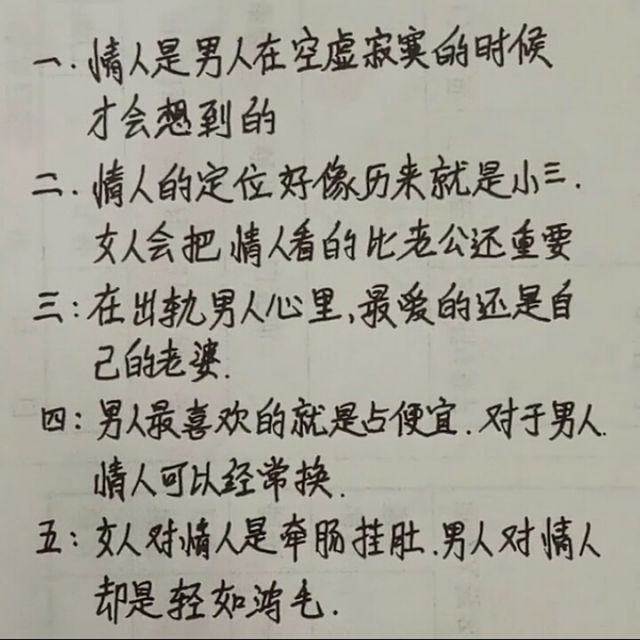 一.情人是男人在空虚寂寞的时候
才会想到的
二.情人的定位好像历来就是小三.
女人会把情人看的比老公还重要
三:在出轨男人心里,最爱的还是自
己的老婆.
四:男人最喜欢的就是占便宜.对于男人.
情人可以经常换.
五:女人对情人是牵肠挂肚.男人对情人
却是轻如鸿毛.